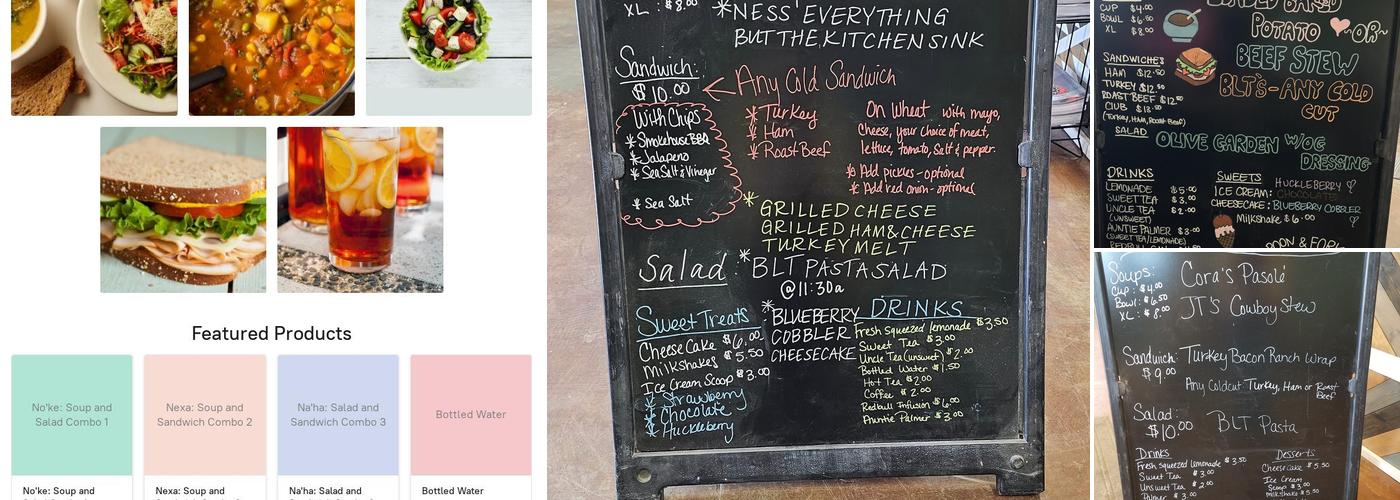 Featured Products
No'ke: Soup and
Salad Combo 1
Nexa: Soup and
Sandwich Combo 2
Na'ha: Salad and
Sandwich Combo 3
Bottled Water
No'ke: Soup and
Nexa: Soup and
Na'ha: Salad and
Bottled Water
XL : $8.00
*NESS' EVERYTHING
BUT THE KITCHEN SINK
Sandwich:
$10.00
Any Cold Sandwich
With Chips
* Smokehouse BBQ
* Jalapeno
* Sea Salt & Vinegar
* Sea Salt
* Turkey
* Ham
* Roast Beef
On Wheat with mayo,
cheese, your choice of meat,
lettuce, tomato, Salt & pepper.
* Add pickles - optional
* Add red onion - optional
* GRILLED CHEESE
GRILLED HAM & CHEESE
TURKEY MELT
Salad:
*BLT PASTA SALAD
@ 11:30a
Sweet Treats
CheeseCake $6.00
Milkshakes $5.50
Ice Cream Scoop $3.00
* Strawberry
* Chocolate
* Huckleberry
*BLUEBERRY
COBBLER
CHEESECAKE
DRINKS
Fresh squeezed lemonade $3.50
Sweet Tea $3.00
Uncle Tea (unsweet) $2.00
Bottled Water $1.50
Hot Tea $2.00
Coffee $2.00
Redbull Infusion $6.00
Auntie Palmer $3.00
CUP $4.00
BOWL $6.00
XL $8.00
LOADED BAKED
POTATO OR
BEEF STEW
SANDWICHES
HAM $12.50
TURKEY $12.50
ROAST BEEF $12.50
CLUB $13.50
(Turkey, Ham, Roast Beef)
BLT'S - ANY COLD
CUT
SALAD
OLIVE GARDEN W/OG
DRESSING
DRINKS
LEMONADE $5.00
SWEET TEA $3.00
UNCLE TEA $2.00
(UNSWEET)
AUNTIE PALMER $3.00
(SWEET TEA/LEMONADE)
SWEETS
ICE CREAM: HUCKLEBERRY
CHOCOLATE
CHEESECAKE: BLUEBERRY COBBLER
Milkshake $6.00
Soups:
Cup: $4.00
Bowl: $6.50
XL: $8.00
Cora's Pasolé
JT'S Cowboy Stew
Sandwich:
$9.00
Turkey Bacon Ranch Wrap
Any Coldcut Turkey, Ham or Roast
Beef
Salad:
$10.00
BLT Pasta
Drinks
Fresh squeezed lemonade $3.50
Sweet Tea $3.00
Unsweet Tea $2.00
Palmer $3.00
Desserts
Cheese Cake $5.50
Ice Cream
Scoop $3.00
Milkshake $5.50